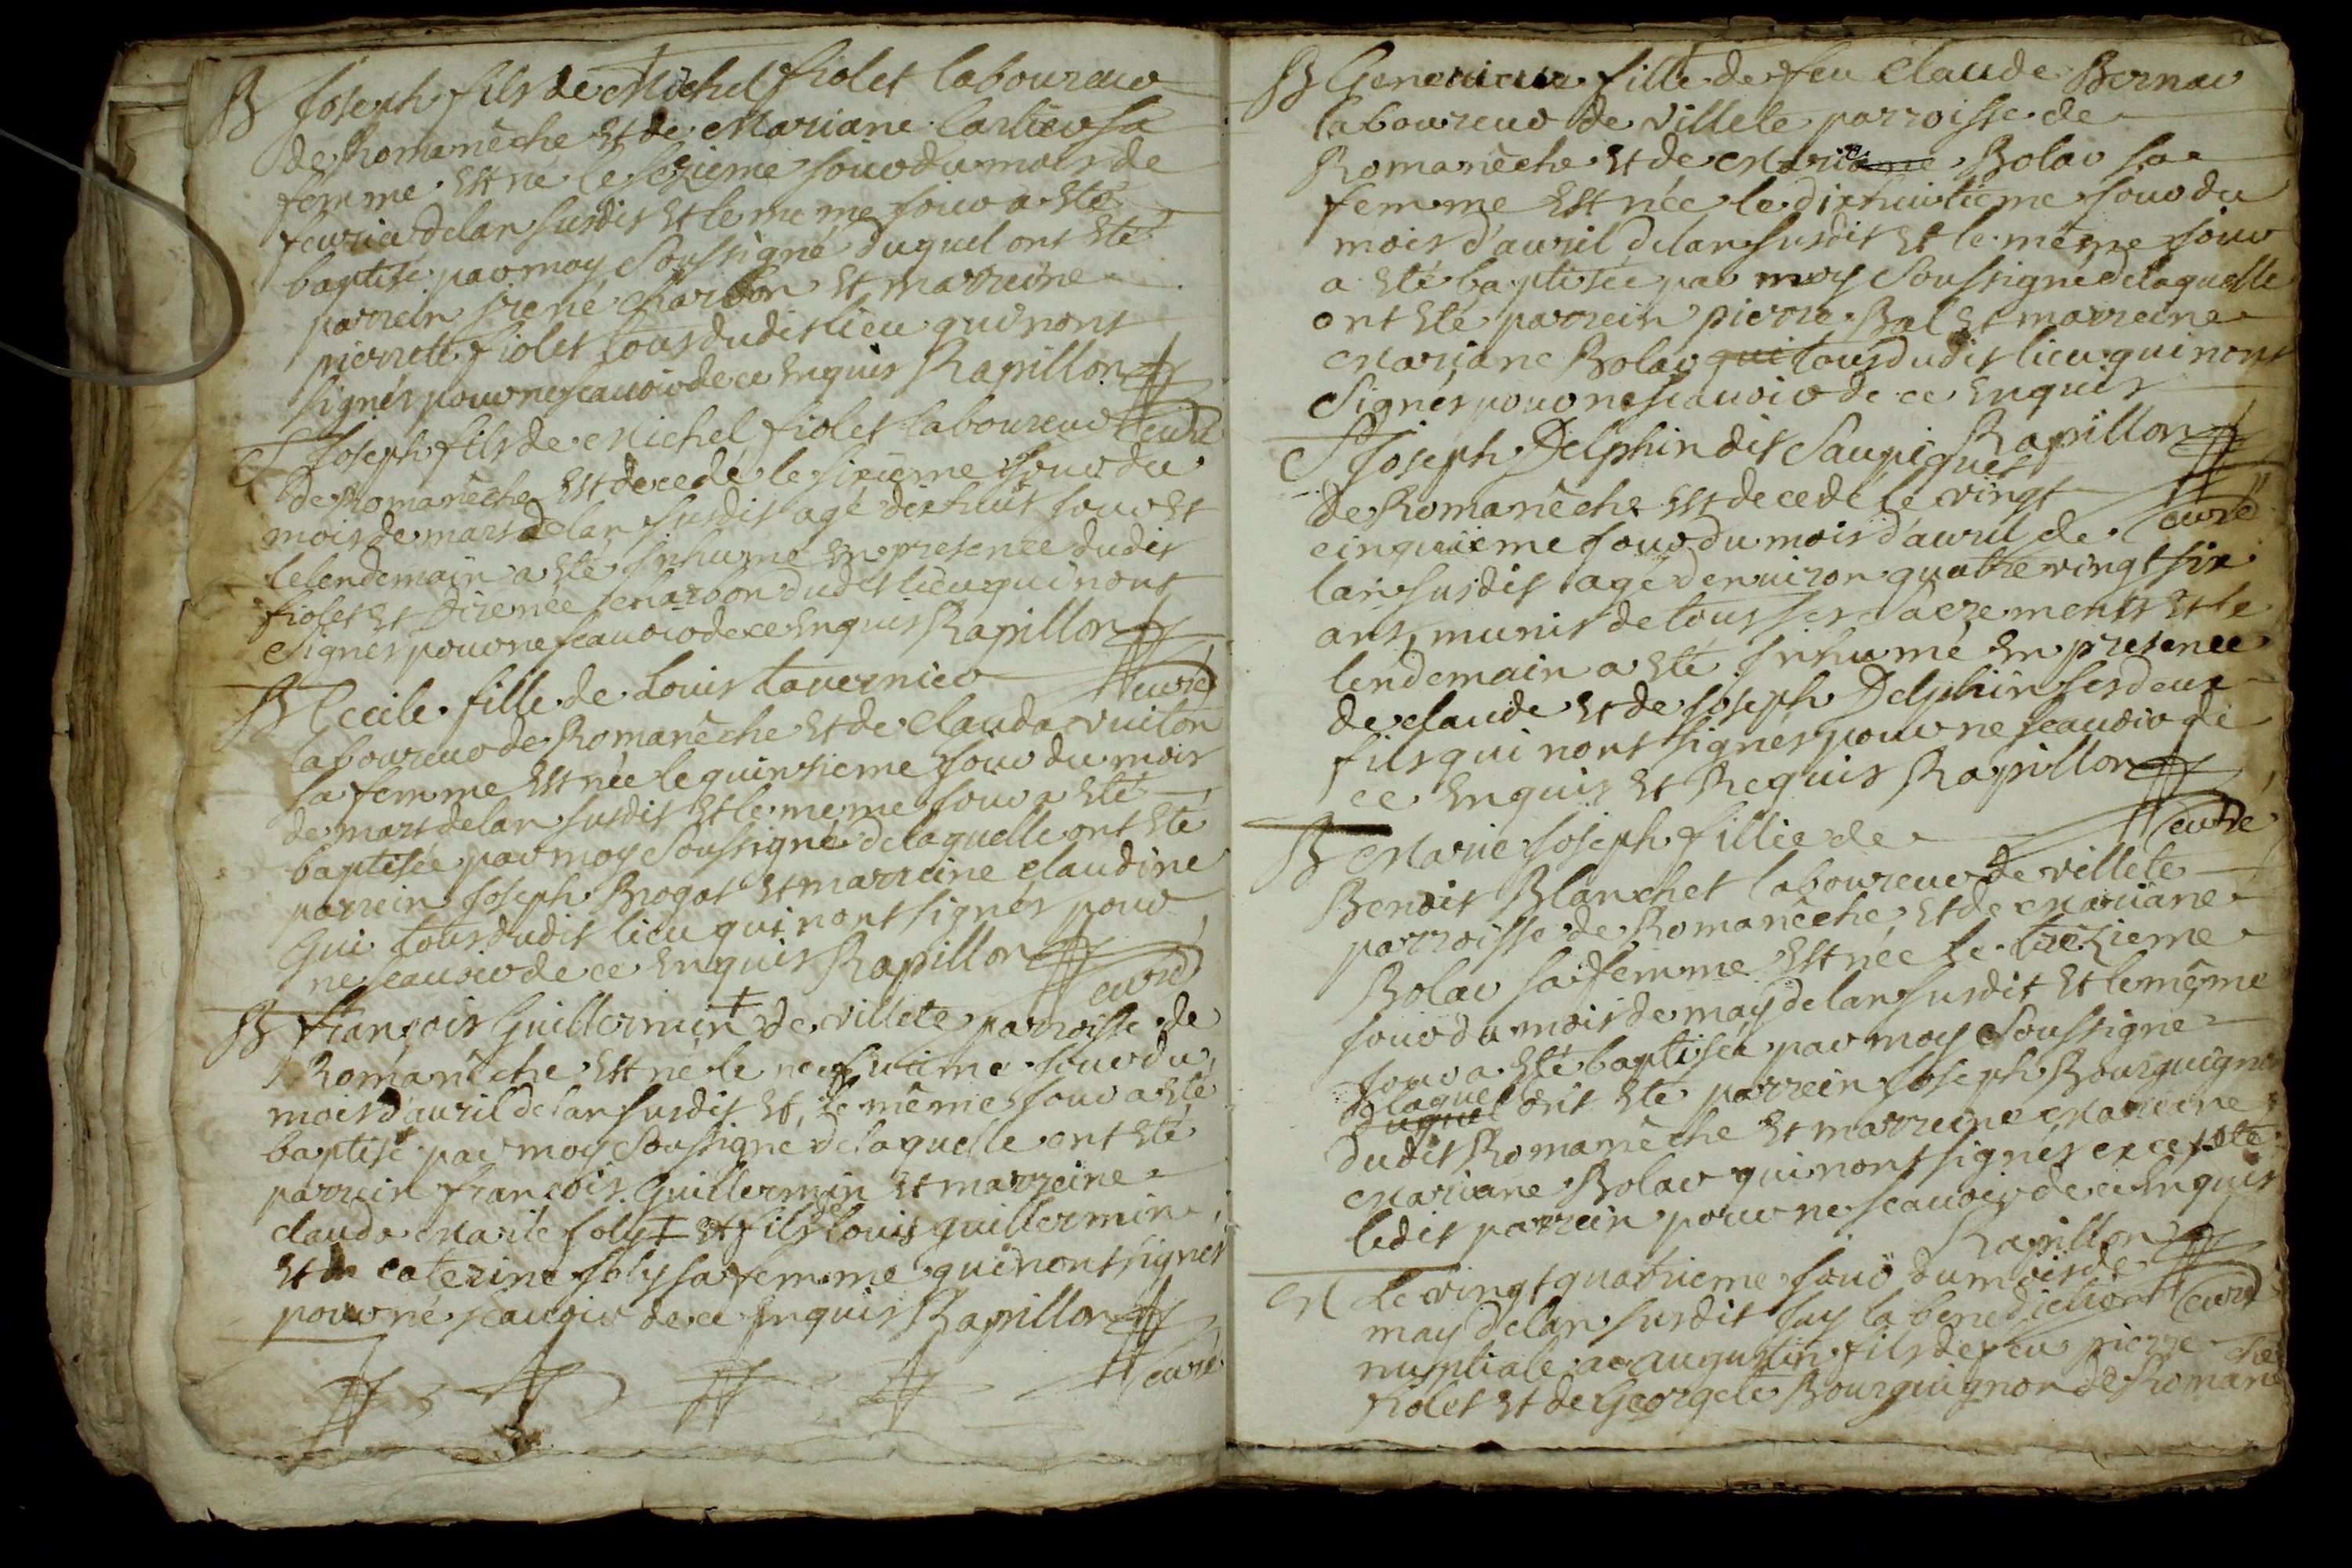 B Joseph fils de Michel fiolet laboureur
de Romanêche et de Mariane Carlier sa
femme est né le sezieme jour du mois de
feurier delan susdit et le meme jour a esté
baptisé par moy soussigné duquel ont eté
parrein jrené Charbon et marreine
pierrete fiolet tous dudit lieu qui nont
signés pour ne sçauoir de ce enquis Rapillon
curé
S Joseph fils de Michel fiolet laboureur
de Romanêche est decedé le sixieme jour du
mois de mars delan susdit agé dixhuit jour et
le lendemain a eté jnhumé en presence dudit
fiolet et direnée charbon dudit lieu qui nont
signés pour ne scauoir de ce enquis Rapillon
curé
B Cecile fille de Louis tavernier
laboureur de Romanêche et de Clauda vuiton
sa femme est née le quinsieme jour du mois
de mars delan susdit et le meme jour a eté
baptisée par moy soussigné delaquelle ont eté
parrein Joseph Brogat et marreine claudine
Gui tous dudit lieu qui nont signés pour
ne scauoir de ce enquis Rapillon
curé
B françois Guillermin de villete parroisse de
Romanêche est né le neufuieme jour du
mois d'auril delan susdit et le même jour a eté
baptisé par moy soussigné delaquelle ont eté
parrein françois Guillermin et marreine
clauda Marie foly et fils de louis guillermin
et de caterine foly sa femme qui nont signés
pour ne scauoir de ce enquis Rapillon
curé
B Geneuieue fille de feu Claude Bernar
laboureur de villete parroisse de
Romanêche et de Marie Bolar sa
femme est née le dixhuitieme jour du
mois d'auril delan susdit et le même jour
a eté baptisée par moy soussigné delaquelle
ont eté parrein pierre Bal et marreine
Mariane Bolar qui tous dudit lieu qui nont
signés pour ne scauoir de ce enquis
Rapillon
curé
S Joseph Delphin dit Saupiquet
de Romanêche est decedé le vingt
cinquieme jour du mois d'auril de
lan susdit agé denuiron quatre vingt six
ans, munis de tous ses sacrements et le
lendemain a eté jnhumé en presence
de claude et de joseph Delphin ses deux
fils qui nont signés pour ne scauoir de
ce enquis et Requis Rapillon
curé
B Marie Joseph fillie de
Benoit Blanchet laboureur de villete
parroisse de Romanêche, et de Mariane
Bolar sa femme est née le treizieme
jour du mois de may delan susdit et le même
jour a eté baptisée par moy soussigné
delaquel
duquel ont eté parrein Joseph Bourguignon
dudit Romanêche et marreine Mariane
Mariane Bolar qui nont signés excepté
ledit parrein pour ne scauoir de ce enquis
Rapillon
curé
M Le vingt quatrieme jour du mois de
may delan susdit jay la benediction
nuptiale a augustin fils de feu pierre
fiolet et de Georgete Bourguignon de Romanê
che